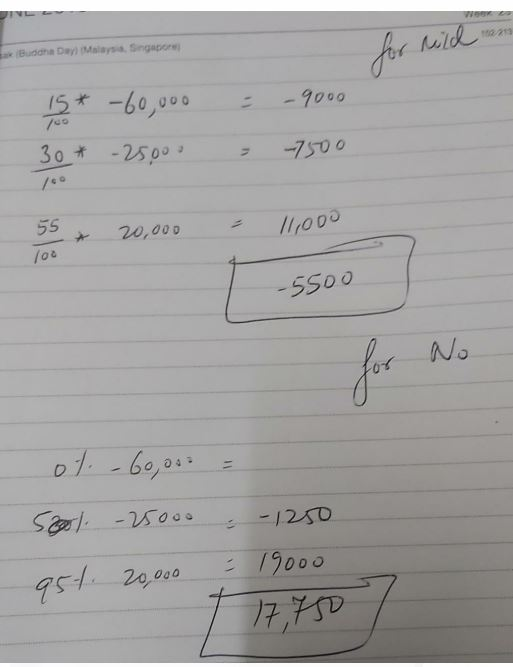 sak (Buddha Day) (Malaysia, Singapore)
for Mild
15/100 * -60,000 = -9000
30/100 * -25,000 = -7500
55/100 * 20,000 = 11,000
-5500
for No
0% -60,000 =
5% -25000 = -1250
95% 20,000 = 19000
17,750